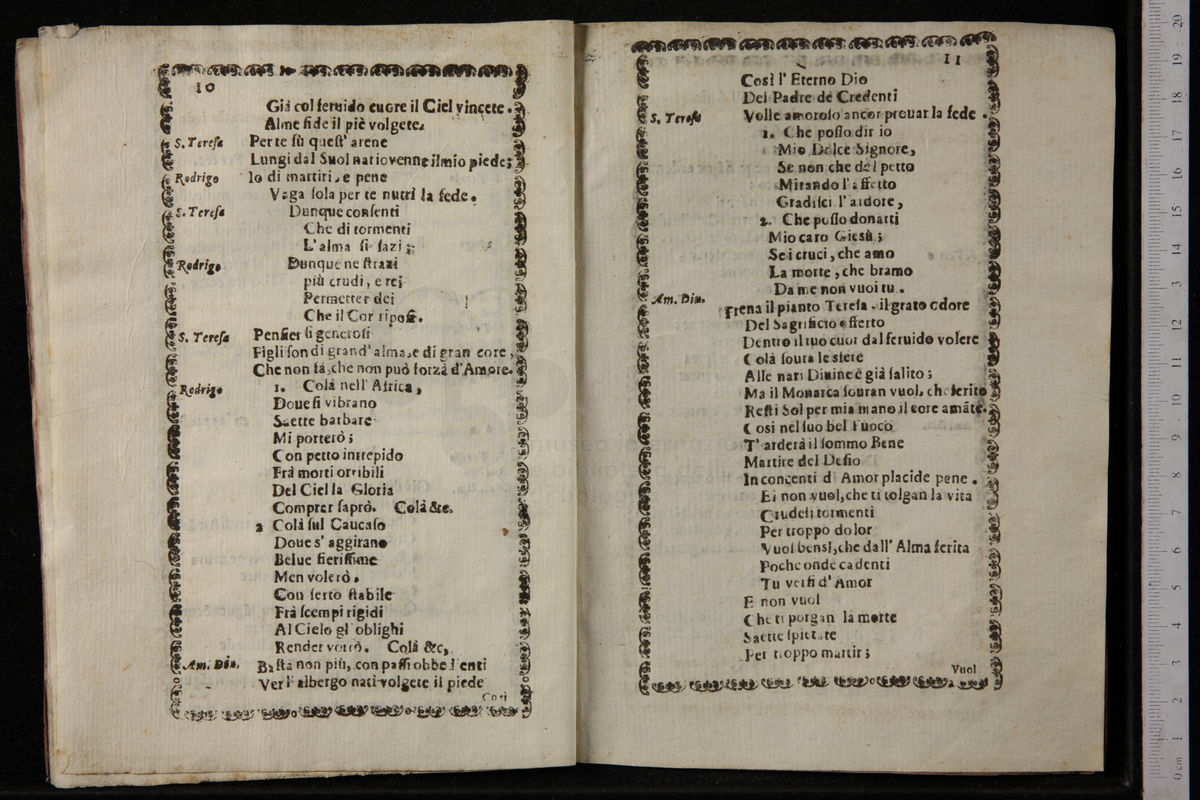 10
Già col feruido cuore il Ciel vincete.
Alme fide il piè volgete.
S. Teresa Per te sù quest' arene
Lungi dal Suol natio venne il mio piede;
Rodrigo Io di martiri, e pene
Vaga sola per te nutrì la fede.
S. Teresa Dunque consenti
Che di tormenti
L'alma si sazi;
Rodrigo Dunque ne strazi
più crudi, e rei
Permetter dei
Che il Cor riposi.
S. Teresa Pensier sì generosi
Figli son di grand' alma, e di gran core,
Che non fà, che non può forza d'Amore.
Rodrigo 1. Colà nell' Africa,
Doue si vibrano
Saette barbare
Mi porterò;
Con petto intrepido
Frà morti orribili
Del Ciel la Gloria
Comprar saprò. Colà &c.
2 Colà sul Caucaso
Doue s' aggirano
Belue fierissime
Men volerò.
Con ferto stabile
Frà scempi rigidi
Al Cielo gl' oblighi
Render vorrò. Colà &c.
Am. Diu. Basta non più, con passi obbedienti
Ver l' albergo nati volgete il piede
Così
11
Così l' Eterno Dio
Del Padre de Credenti
S. Teresa Volle amoroso ancor prouar la fede.
1. Che posso dir io
Mio Dolce Signore,
Se non che del petto
Mirando l' affetto
Gradisci l' ardore,
2. Che posso donarti
Mio caro Giesù;
Se i cruci, che amo
La morte, che bramo
Da me non vuoi tu.
Am. Diu. Frena il pianto Teresa, il grato odore
Del Sagrificio offerto
Dentro il tuo cuor dal feruido volere
Colà soura le sfere
Alle nari Diuine è già salito;
Ma il Monarca souran vuol, che ferito
Resti Sol per mia mano il core amãte.
Così nel suo bel fuoco
T' arderà il sommo Bene
Martire del Desio
In concenti d' Amor placide pene.
Ei non vuol, che ti tolgan la vita
Crudeli tormenti
Per troppo dolor
Vuol bensì, che dall' Alma ferita
Poche onde cadenti
Tu versi d' Amor
E non vuol
Che ti porgan la morte
Saette spietate
Per troppo martir;
Vuol